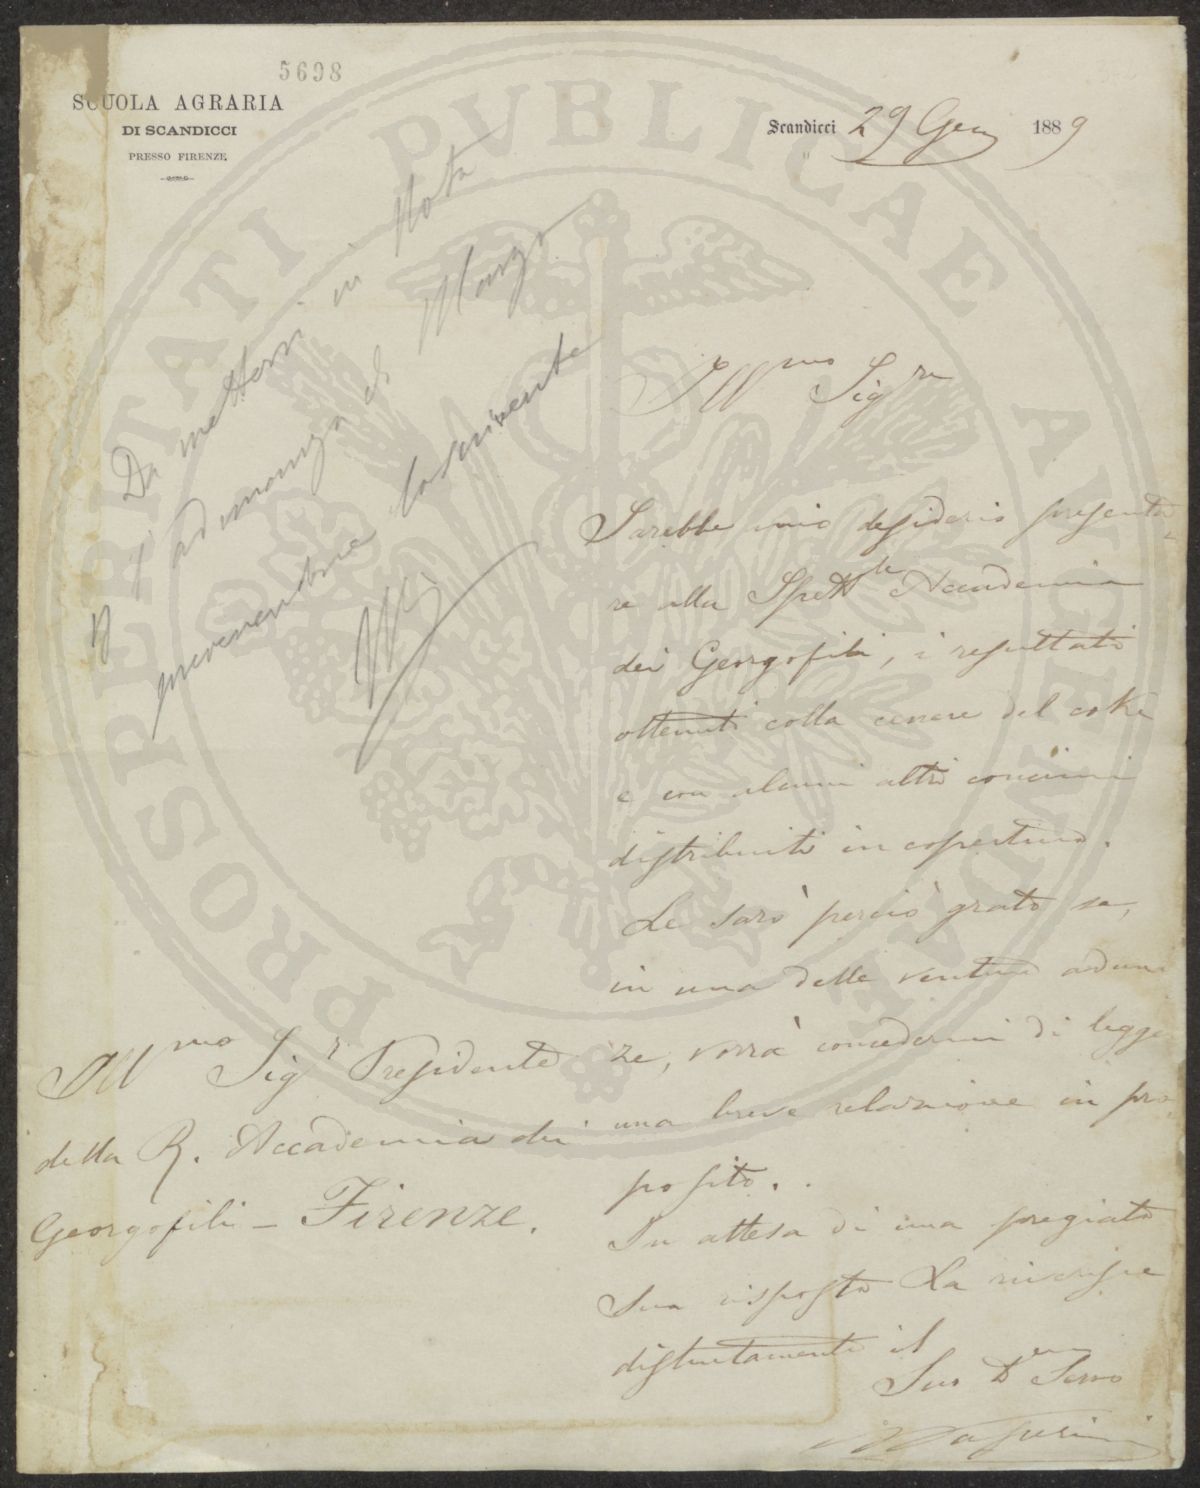 5698
SCUOLA AGRARIA
DI SCANDICCI
PRESSO FIRENZE
Scandicci 29 Gen 1889
Da mettersi in Nota
p l' adunanza di Marzo
prevenendone lo scrivente
Ill.mo Sig.re
Sarebbe mio desiderio presenta-
re alla Spett.le Accademia
dei Georgofili, i resultati
ottenuti colla cenere del coke
e con alcuni altri concimi
distribuiti in copertura.
Le sarò perciò grato se,
in una delle venture adunan
ze, vorrà concedermi di legge
una breve relazione in pro
posito.
In attesa di una pregiata
Sua risposta La riverisce
distintamente il
Suo D.mo Servo
Ill.mo Sig.r Presidente
della R. Accademia dei
Georgofili - Firenze.
PROSPERITATI PVBLICAE AVGENDAE